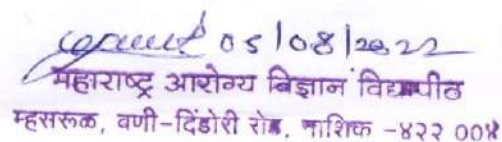 05/08/2022
महाराष्ट्र आरोग्य विज्ञान विद्यापीठ
म्हसरूळ, वणी-दिंडोरी रोड, नाशिक -४२२ ००४